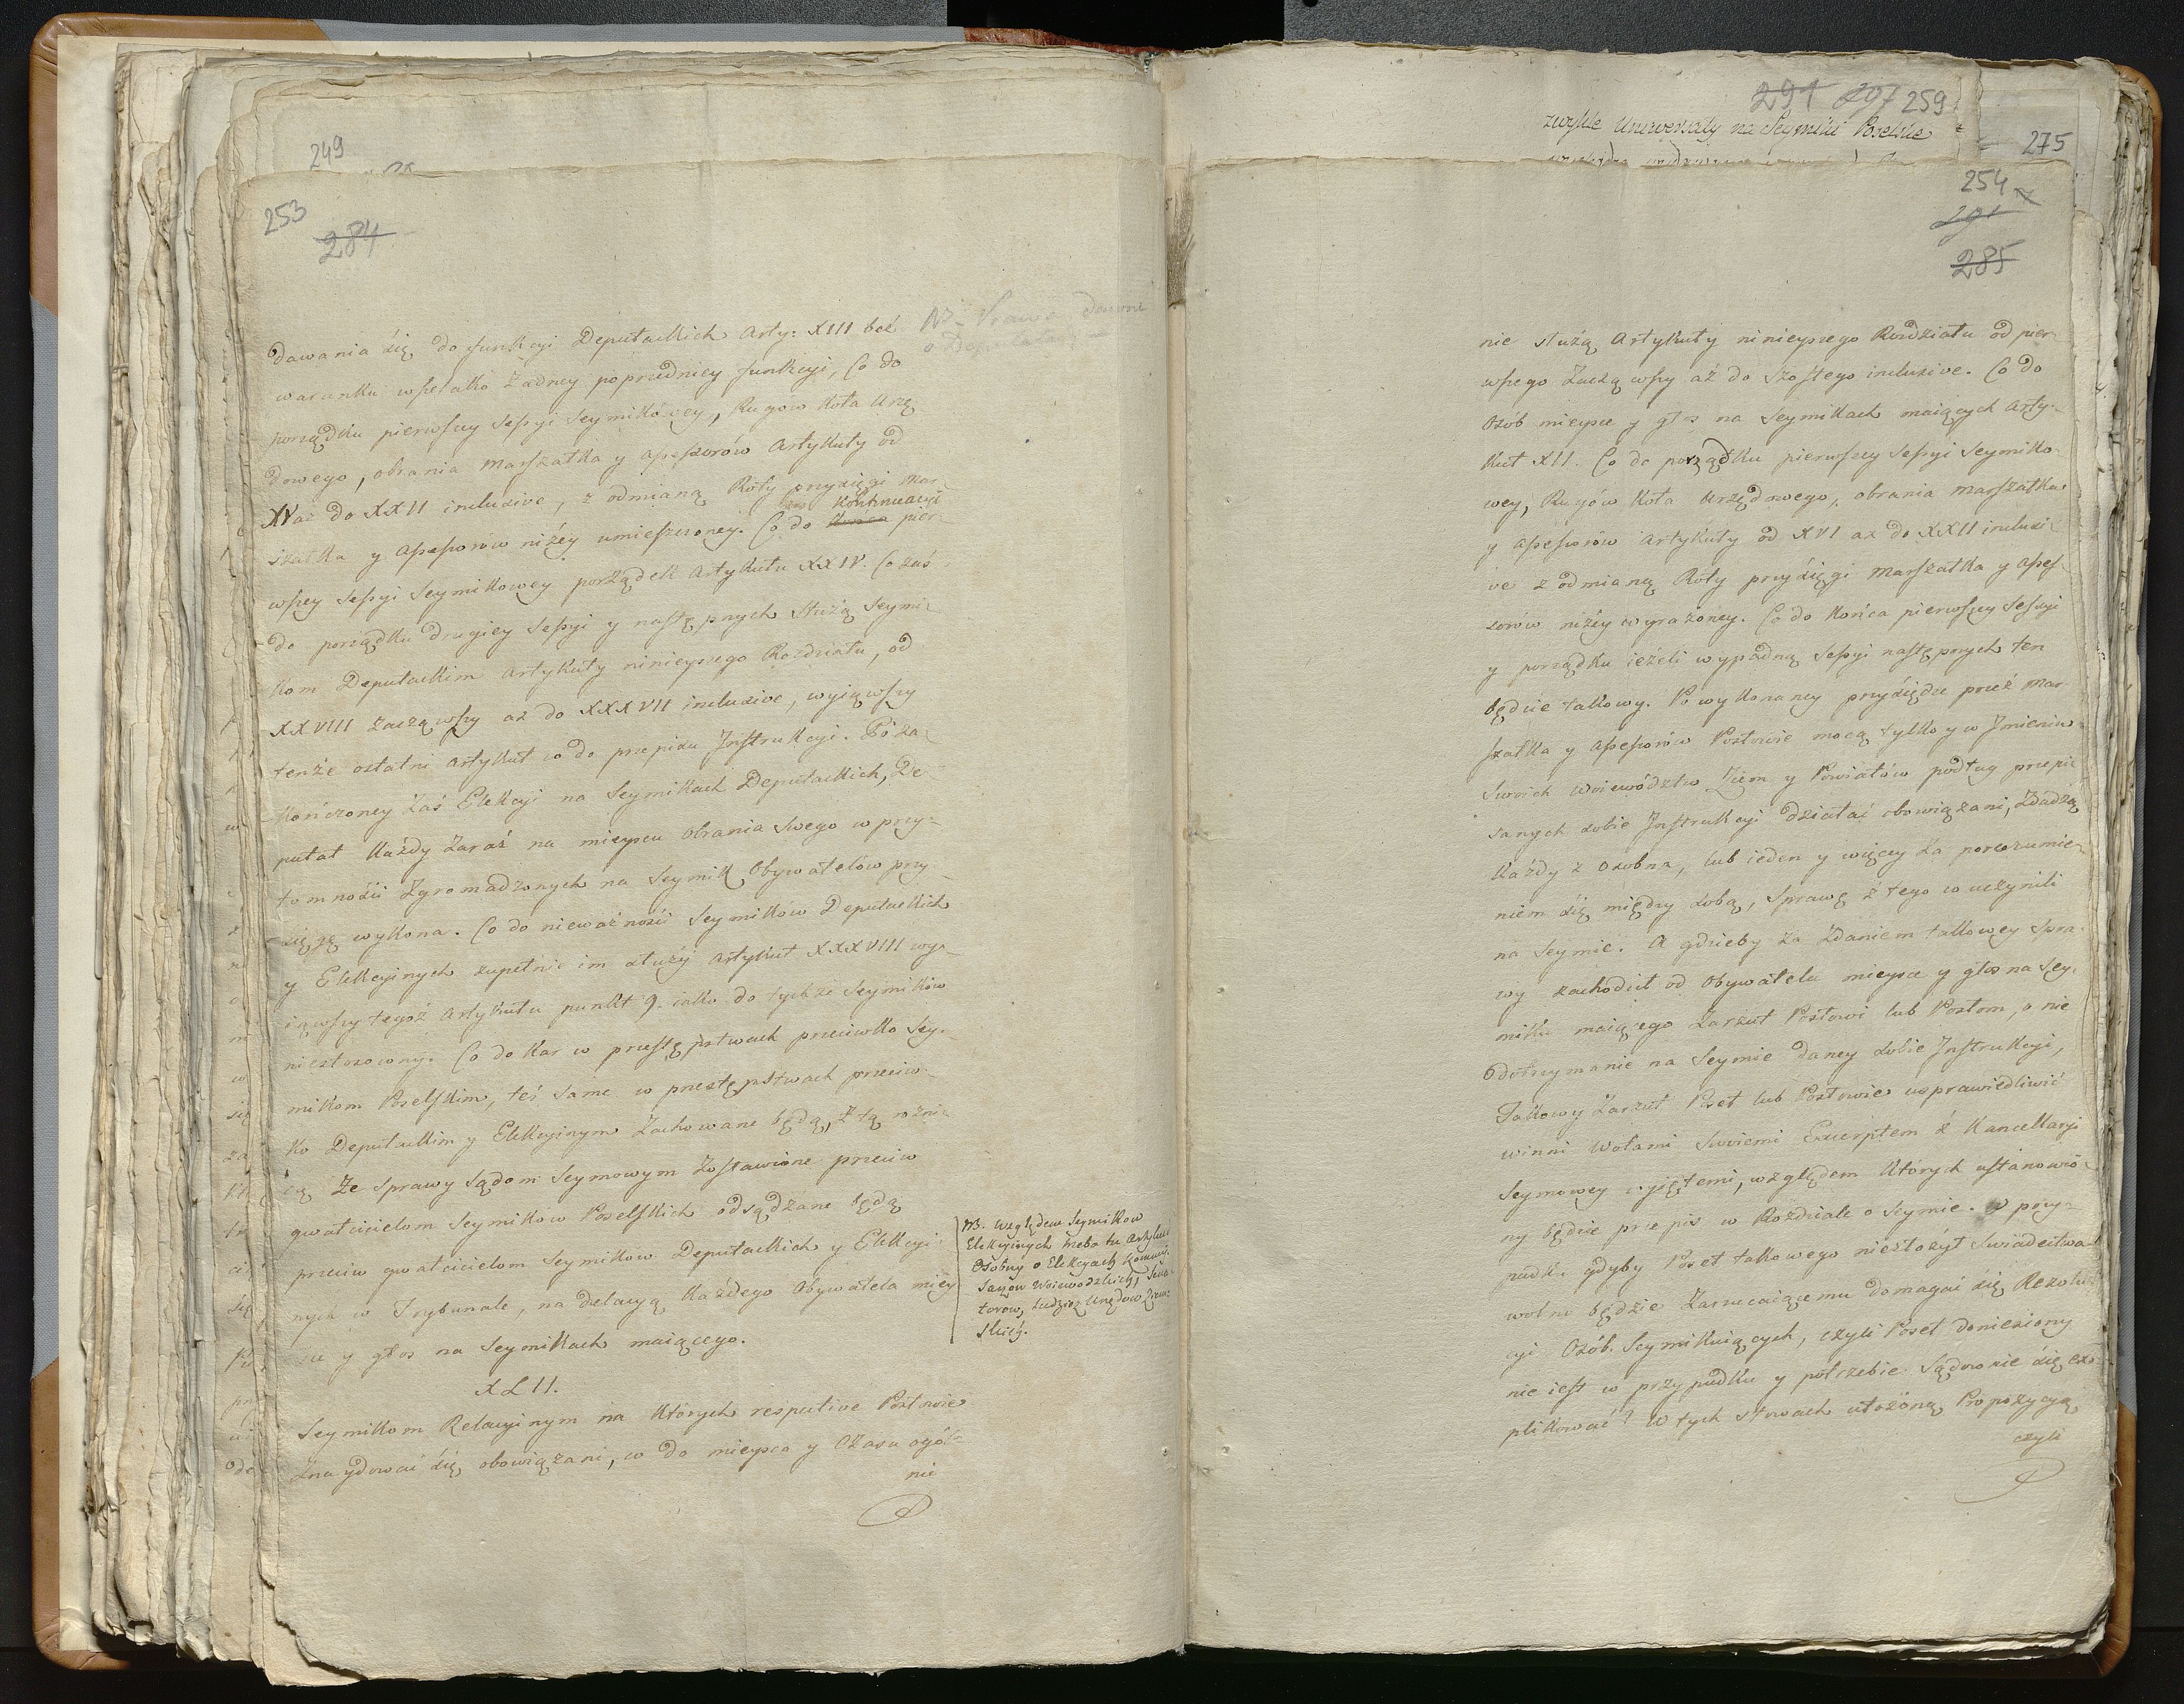 249
253
284
NB. Prawo dawne
o Deputatach
dawania się do funkcyi Deputackich Arty: XIII bez
warunku wszelako żadney poprzedniey funkcyi, Co do
porządku pierwszey Sessyi Seymikowey, Rugów Koła Urzę-
dowego, obrania Marszałka y Assessorów Artykuły od
XV aż do XXII inclusive, z odmianą Roty przysięgi Mar-
kontynuacyi
szałka y Assessorów niżey umieszczoney. Co do pier-
wszey Sessyi Seymikowey porządek Artykułu XXIV. Co zaś
do porządku drugiey Sessyi y następnych służą Seymi-
kom Deputackim Artykuły ninieyszego Rozdziału, od
XXVIII zacząwszy aż do XXXVII inclusive, wyiąwszy
tenże ostatni Artykuł co do przepisu Instrukcyi. Po za-
kończoney zaś Elekcyi na Seymikach Deputackich, De-
putat każdy zaraz na mieyscu obrania swego w przy-
tomności zgromadzonych na Seymik Obywatelów przy-
sięgę wykona. Co do nieważności Seymików Deputackich
y Elekcyinych zupełnie im służy Artykuł XXXVIII wy-
iąwszy tegoż Artykułu punkt 9. iako do tychże Seymików
niestosowny. Co do Kar w przestępstwach przeciwko Sey-
mikom Poselskim, też same w przestępstwach przeciw-
ko Deputackim y Elekcyinym zachowane będą, z tą rożni-
cą że sprawy Sądom Seymowym zostawione przeciw
gwałcicielom Seymików Poselskich odsądzane będą
przeciw gwałcicielom Seymikow Deputackich y Elekcyi-
nych w Trybunale, na delacyą każdego Obywatela miey-
sce y głos na Seymikach maiącego.
XLII.
Seymikom Relacyinym na których respective Posłowie
znaydować się obowiązani, co do mieysca y czasu ogól-
nie
NB. Względem Seymikow
Elekcyinych trzeba tu Artykuł
Osobny o Elekcyach Kommis-
sarzow Woiewodzkich, Sena-
torow, tudzież Urzędow Ziem-
skich.
291 297 259
zwykłe Uniwersały na Seymiki Poselskie
275
254
291
285
nie służą Artykuły ninieyszego Rozdziału od pier-
wszego zacząwszy aż do szostego inclusive. Co do
Osób mieysce y głos na Seymikach maiących Arty-
kuł XII. Co do porządku pierwszey Sessyi Seymiko-
wey, Rugów Koła Urzędowego, obrania Marszałka
y Assessorów Artykuły od XVI aż do XXII inclusi-
ve z odmianą Roty przysięgi Marszałka y Asses-
sorów niżey wyrażoney. Co do końca pierwszey Sessyi
y porządku ieżeli wypadną Sessyi następnych ten
będzie takowy. Po wykonaney przysiędze przez Mar-
szałka y Assessorów Posłowie mocą tylko y w Jmieniu
swoich Woiewództw Ziem y Powiatów podług przepi-
sanych sobie Instrukcyi działać obowiązani, zdadzą
każdy z osobna, lub ieden y więcey za porozumie-
niem się między sobą, sprawę z tego co uczynili
na Seymie. A gdzieby za zdaniem takowey spra-
wy zachodził od Obywatela mieysce y głos na Sey-
miku maiącego zarzut Posłowi lub Posłom, o nie
dotrzymanie na Seymie daney sobie Instrukcyi,
Takowy zarzut Poseł lub Posłowie usprawiedliwić
winni Wotami swoiemi Excerptem z Kancellaryi
Seymowey wyiętemi, względem których ustanowio-
ny będzie przepis w Rozdziale o Seymie. W przy-
padk. gdyby Poseł takowego niezłożył świadectwa
wolno będzie zarzucaiącemu domagać się Rezolu-
cyi Osób Seymikuiących, czyli Poseł doniesiony
nie iest w przypadku y potrzebie Sądownie się ex-
plikować? W tych słowach ułożoną Propozycyą
czyli